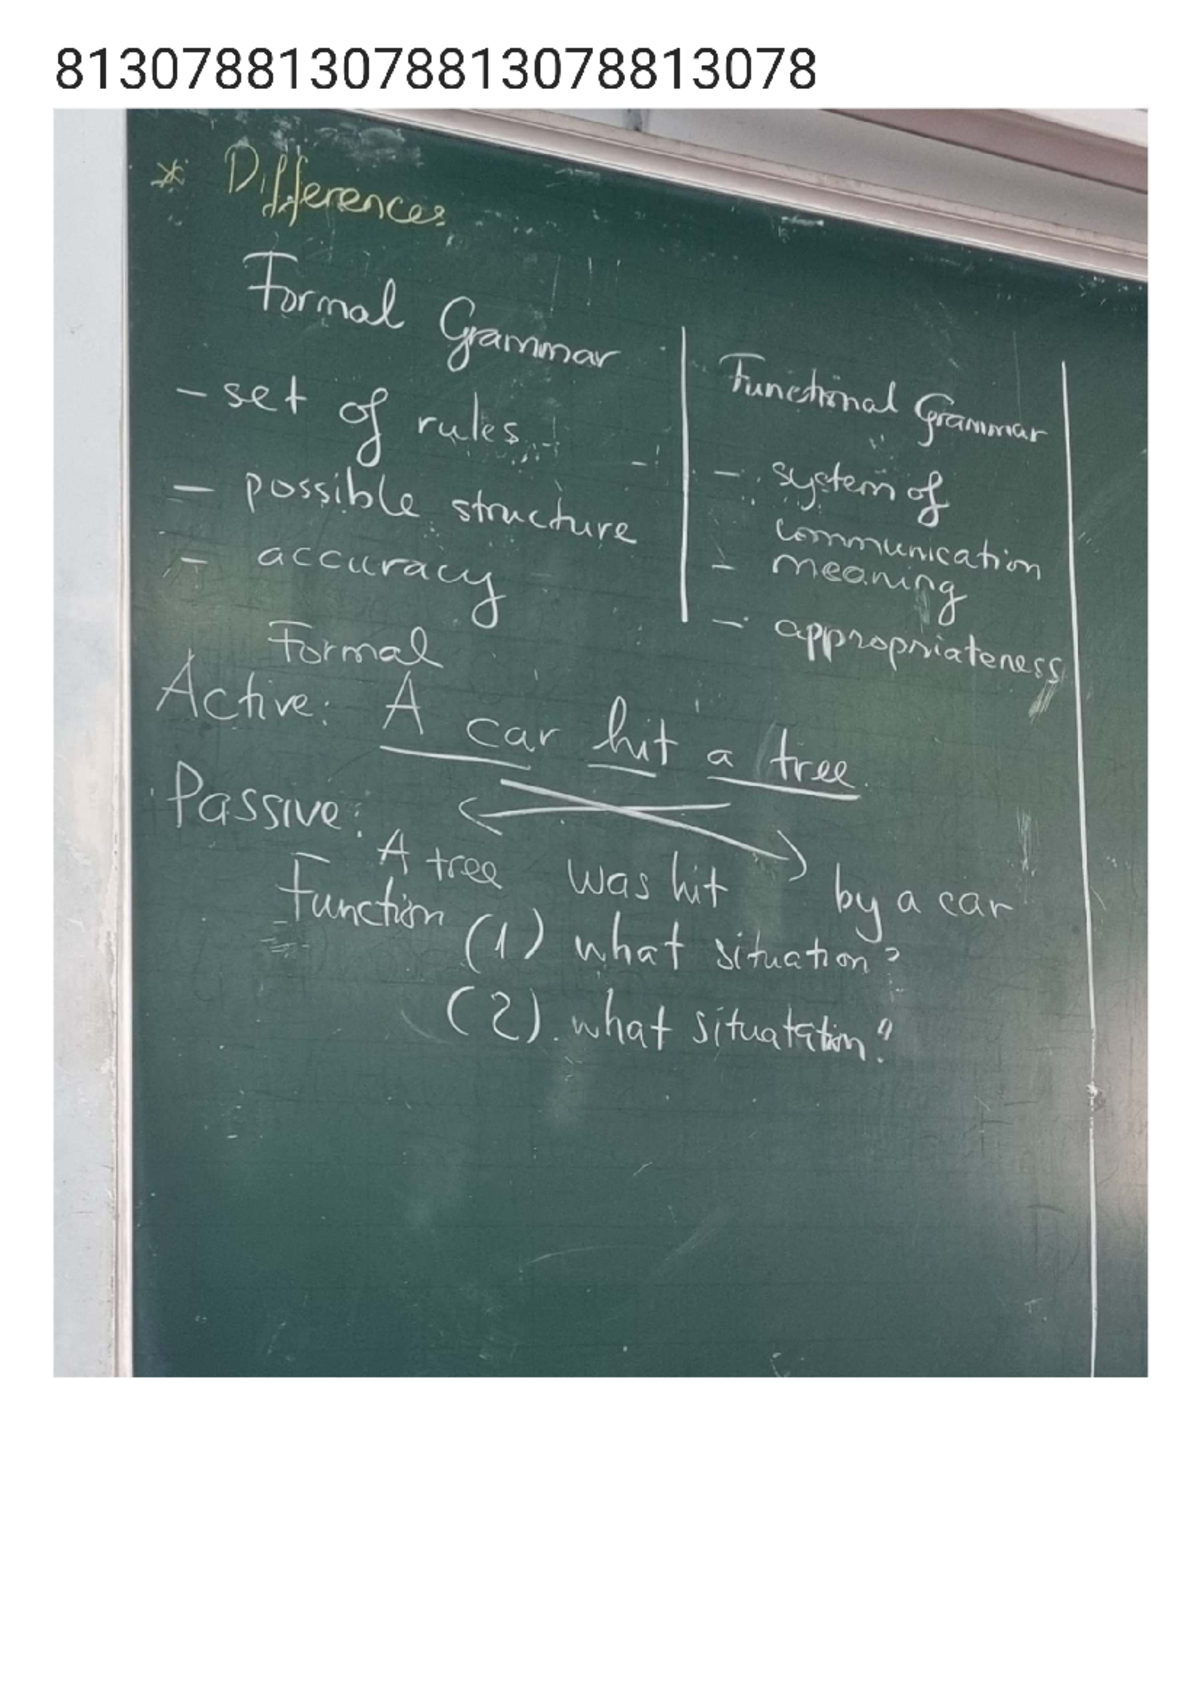 813078813078813078813078
* Differences
Formal Grammar
- set of rules
- possible structure
- accuracy
Functional Grammar
- system of
communication
- meaning
- appropriateness
Formal
Active: A car hit a tree.
Passive:
A tree was hit by a car
Function (1) what situation?
(2). what situatation?